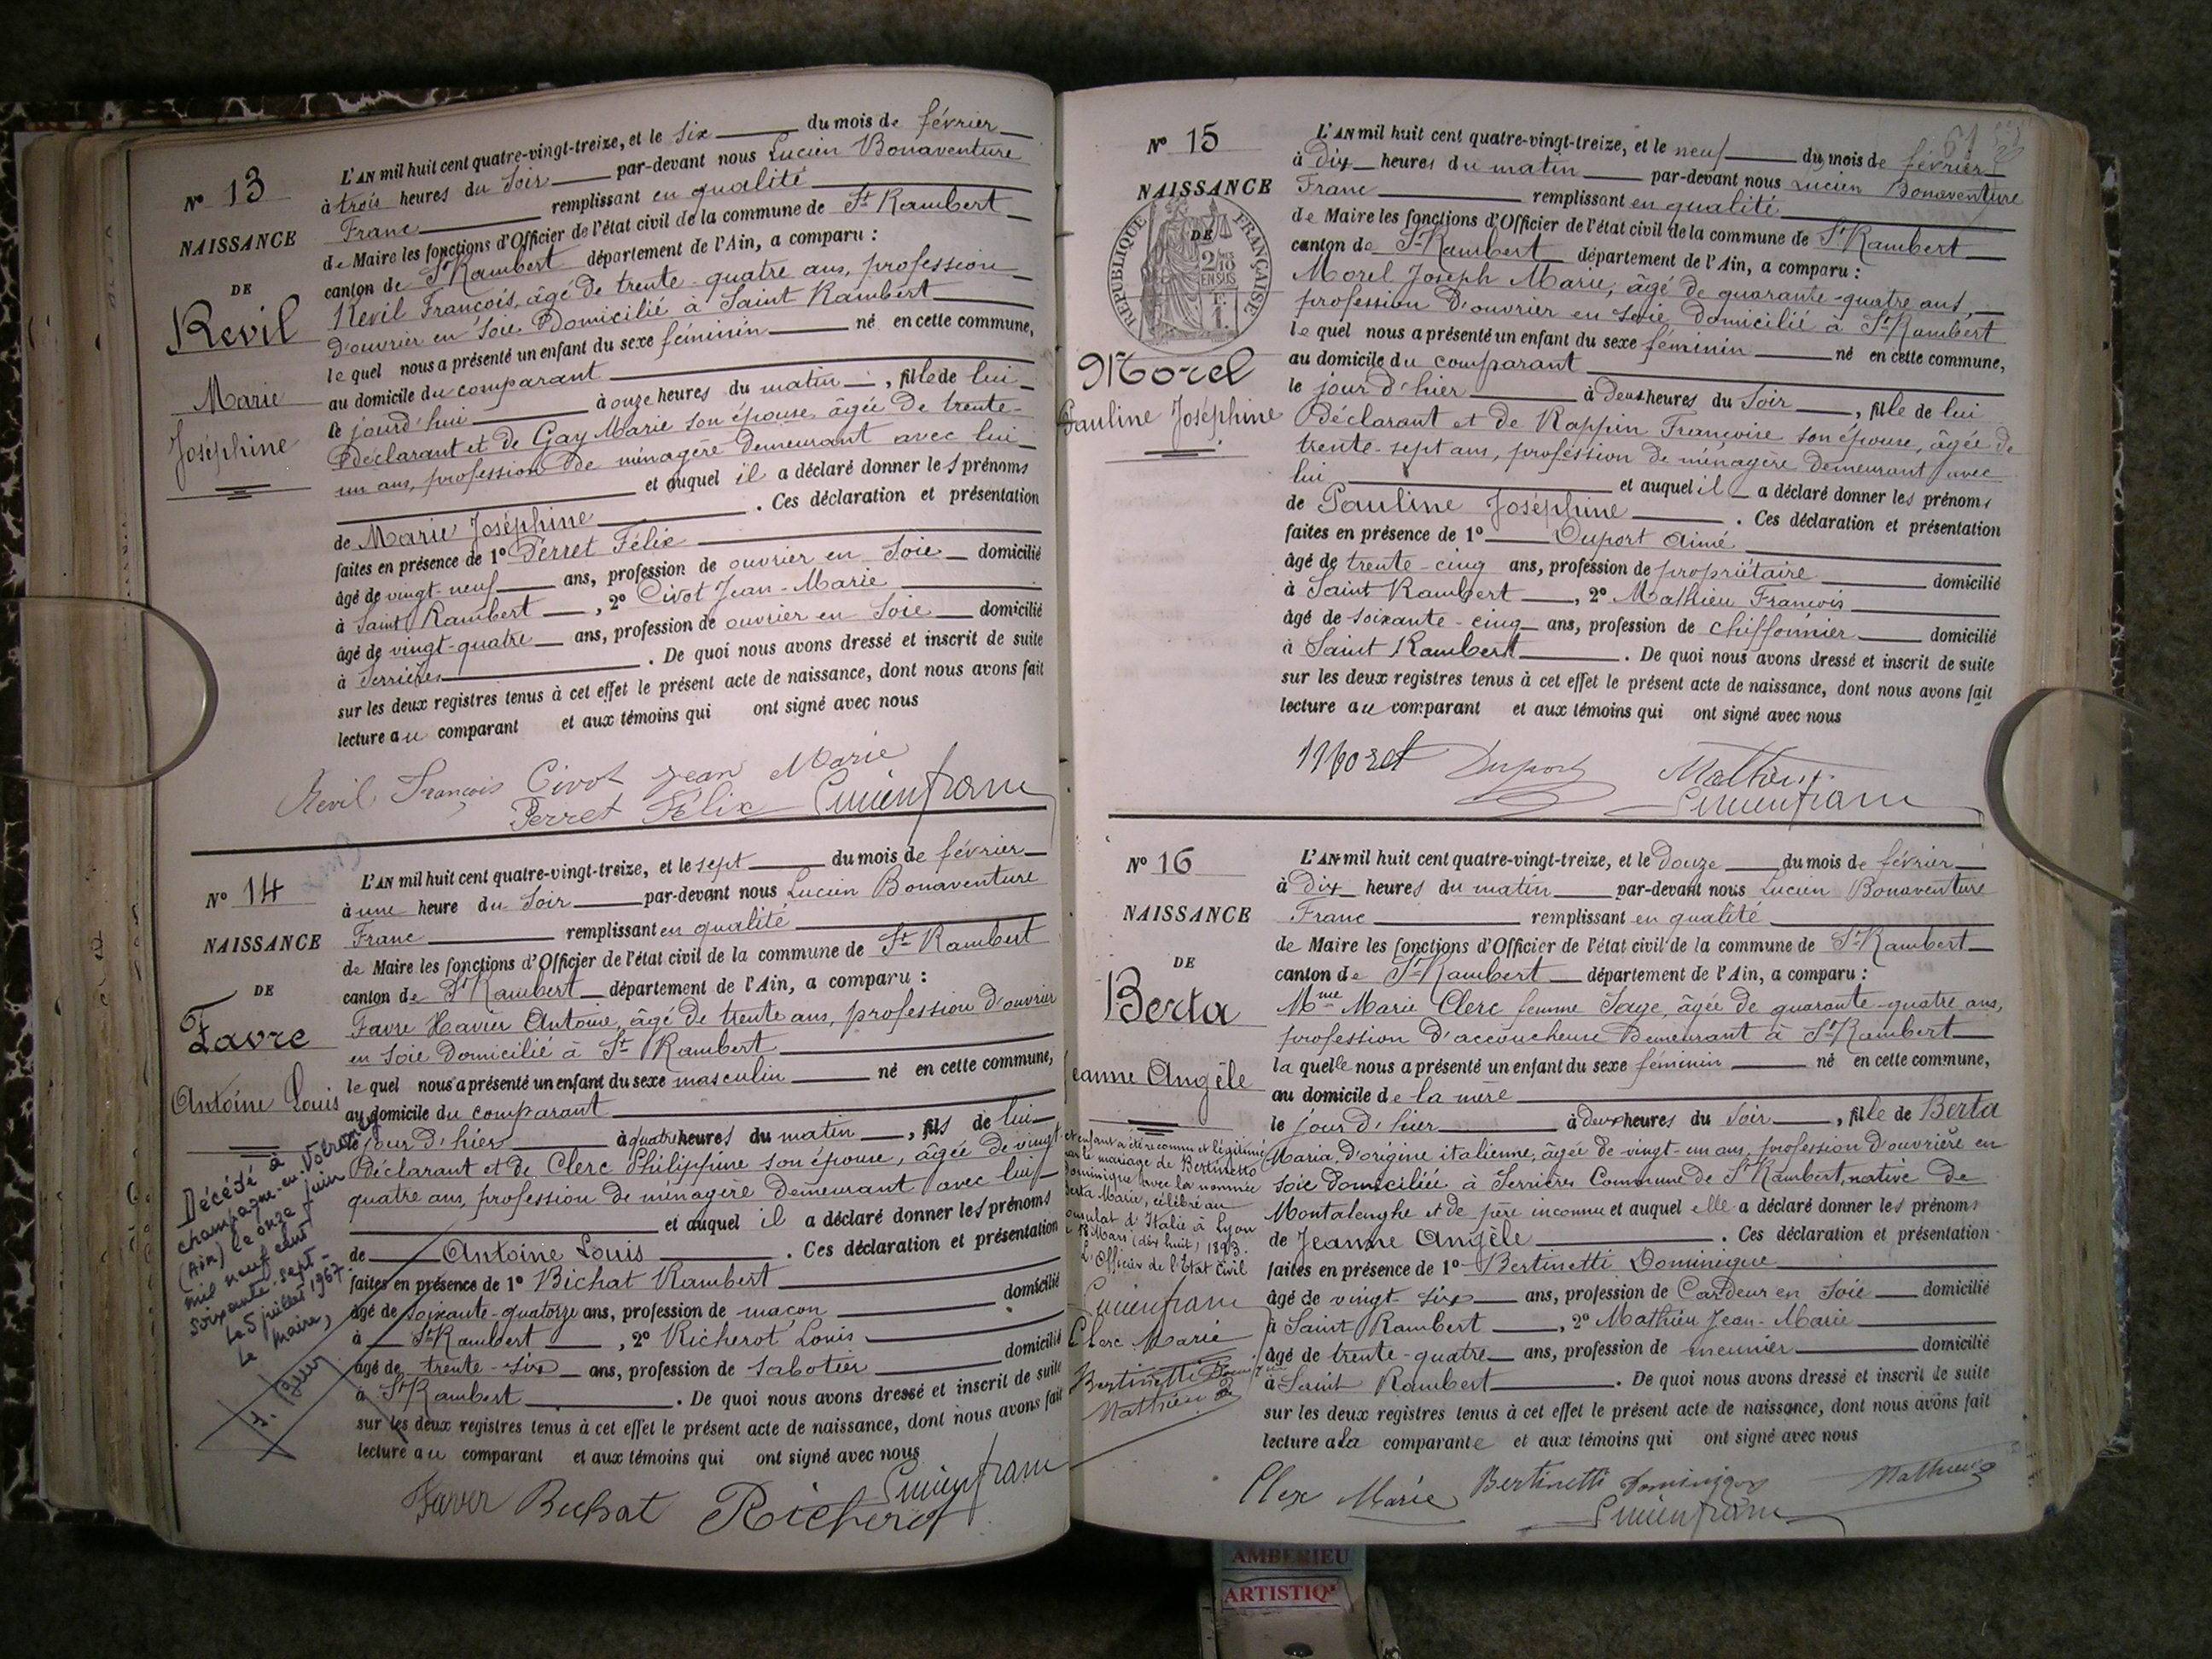 N° 13
NAISSANCE
DE
Revil
Marie
Joséphine
L'AN mil huit cent quatre-vingt-treize, et le six du mois de février
à trois heures du soir par-devant nous Lucien Bonaventure
Franc remplissant en qualité
de Maire les fonctions d'Officier de l'état civil de la commune de St Rambert
canton de St Rambert département de l'Ain, a comparu :
Revil François, âgé de trente-quatre ans, profession
d'ouvrier en soie domicilié à Saint Rambert
lequel nous a présenté un enfant du sexe féminin né en cette commune,
au domicile du comparant
le jourd'hui à onze heures du matin, fille de lui
déclarant et de Gay Marie son épouse âgée de trente-
un ans, profession de ménagère demeurant avec lui
et auquel il a déclaré donner les prénoms
de Marie Joséphine . Ces déclaration et présentation
faites en présence de 1° Perret Félix
âgé de vingt-neuf ans, profession de ouvrier en soie domicilié
à Saint Rambert , 2° Civot Jean-Marie
âgé de vingt-quatre ans, profession de ouvrier en soie domicilié
à Serrières . De quoi nous avons dressé et inscrit de suite
sur les deux registres tenus à cet effet le présent acte de naissance, dont nous avons fait
lecture au comparant et aux témoins qui ont signé avec nous
Revil François Civot Jean Marie
Perret Félix Lucien franc
N° 14
NAISSANCE
DE
Favre
Antoine Louis
Décédé à
Champagne-en-Valromey
(Ain) le onze juin
mil neuf cent
soixante-sept
Le 5 juillet 1967
Le Maire,
L'AN mil huit cent quatre-vingt-treize, et le sept du mois de février
à une heure du soir par-devant nous Lucien Bonaventure
Franc remplissant en qualité
de Maire les fonctions d'Officier de l'état civil de la commune de St Rambert
canton de St Rambert département de l'Ain, a comparu :
Favre Xavier Antoine, âgé de trente ans, profession d'ouvrier
en soie domicilié à St Rambert
lequel nous a présenté un enfant du sexe masculin né en cette commune,
au domicile du comparant
le jour d'hier à quatre heures du matin, fils de lui
déclarant et de Clerc Philippine son épouse, âgée de vingt-
quatre ans, profession de ménagère demeurant avec lui
et auquel il a déclaré donner les prénoms
de Antoine Louis . Ces déclaration et présentation
faites en présence de 1° Bichat Rambert
âgé de soixante-quatorze ans, profession de maçon domicilié
à St Rambert , 2° Richerot Louis
âgé de trente-six ans, profession de sabotier domicilié
à St Rambert . De quoi nous avons dressé et inscrit de suite
sur les deux registres tenus à cet effet le présent acte de naissance, dont nous avons fait
lecture au comparant et aux témoins qui ont signé avec nous
Favre Bichat Richerot Lucien franc
N° 15
NAISSANCE
DE
RÉPUBLIQUE FRANÇAISE
2/10 EN SUS
Morel
Pauline Joséphine
L'AN mil huit cent quatre-vingt-treize, et le neuf du mois de février
à dix heures du matin par-devant nous Lucien Bonaventure
Franc remplissant en qualité
de Maire les fonctions d'Officier de l'état civil de la commune de St Rambert
canton de St Rambert département de l'Ain, a comparu :
Morel Joseph Marie, âgé de quarante-quatre ans,
profession d'ouvrier en soie domicilié à St Rambert
lequel nous a présenté un enfant du sexe féminin né en cette commune,
au domicile du comparant
le jour d'hier à deux heures du soir, fille de lui
déclarant et de Rappin Françoise son épouse, âgée de
trente-sept ans, profession de ménagère demeurant avec
lui et auquel il a déclaré donner les prénoms
de Pauline Joséphine . Ces déclaration et présentation
faites en présence de 1° Duport Aimé
âgé de trente-cinq ans, profession de propriétaire domicilié
à Saint Rambert , 2° Mathieu François
âgé de soixante-cinq ans, profession de chiffonnier domicilié
à Saint Rambert . De quoi nous avons dressé et inscrit de suite
sur les deux registres tenus à cet effet le présent acte de naissance, dont nous avons fait
lecture au comparant et aux témoins qui ont signé avec nous
Morel Duport Mathieu
Lucien franc
N° 16
NAISSANCE
DE
Berta
eanne Angèle
et enfant a été reconnu et légitimé
par le mariage de Bertinetto
Dominique avec la nommée
Berta Marie, célébré au
onsulat d'Italie à Lyon
18 Mars (dix huit) 1893.
L'Officier de l'Etat civil
Lucien franc
Clerc Marie
Bertinetti
Mathieu
L'AN mil huit cent quatre-vingt-treize, et le douze du mois de février
à dix heures du matin par-devant nous Lucien Bonaventure
Franc remplissant en qualité
de Maire les fonctions d'Officier de l'état civil de la commune de St Rambert
canton de St Rambert département de l'Ain, a comparu :
Mme Marie Clerc femme Sage, âgée de quarante-quatre ans,
profession d'accoucheuse demeurant à St Rambert
laquelle nous a présenté un enfant du sexe féminin né en cette commune,
au domicile de la mère
le jour d'hier à deux heures du soir, fille de Berta
Maria, d'origine italienne, âgée de vingt-un ans, profession d'ouvrière en
soie domiciliée à Serrières Commune de St Rambert, native de
Montalenghe et de père inconnu et auquel elle a déclaré donner les prénoms
de Jeanne Angèle . Ces déclaration et présentation
faites en présence de 1° Bertinetti Dominique
âgé de vingt-six ans, profession de Cardeur en soie domicilié
à Saint Rambert , 2° Mathieu Jean-Marie
âgé de trente-quatre ans, profession de meunier domicilié
à Saint Rambert . De quoi nous avons dressé et inscrit de suite
sur les deux registres tenus à cet effet le présent acte de naissance, dont nous avons fait
lecture à la comparante et aux témoins qui ont signé avec nous
Clerc Marie Bertinetti Dominique Mathieu
Lucien franc
AMBERIEU
ARTISTIQ